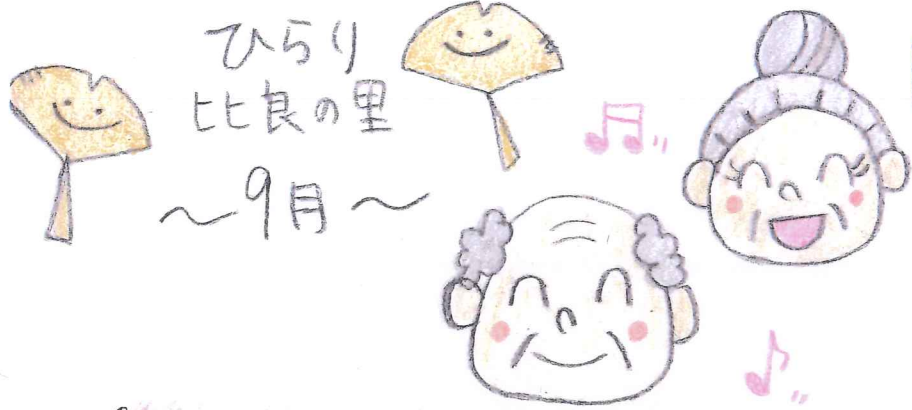 ひらり
比良の里
～9月～